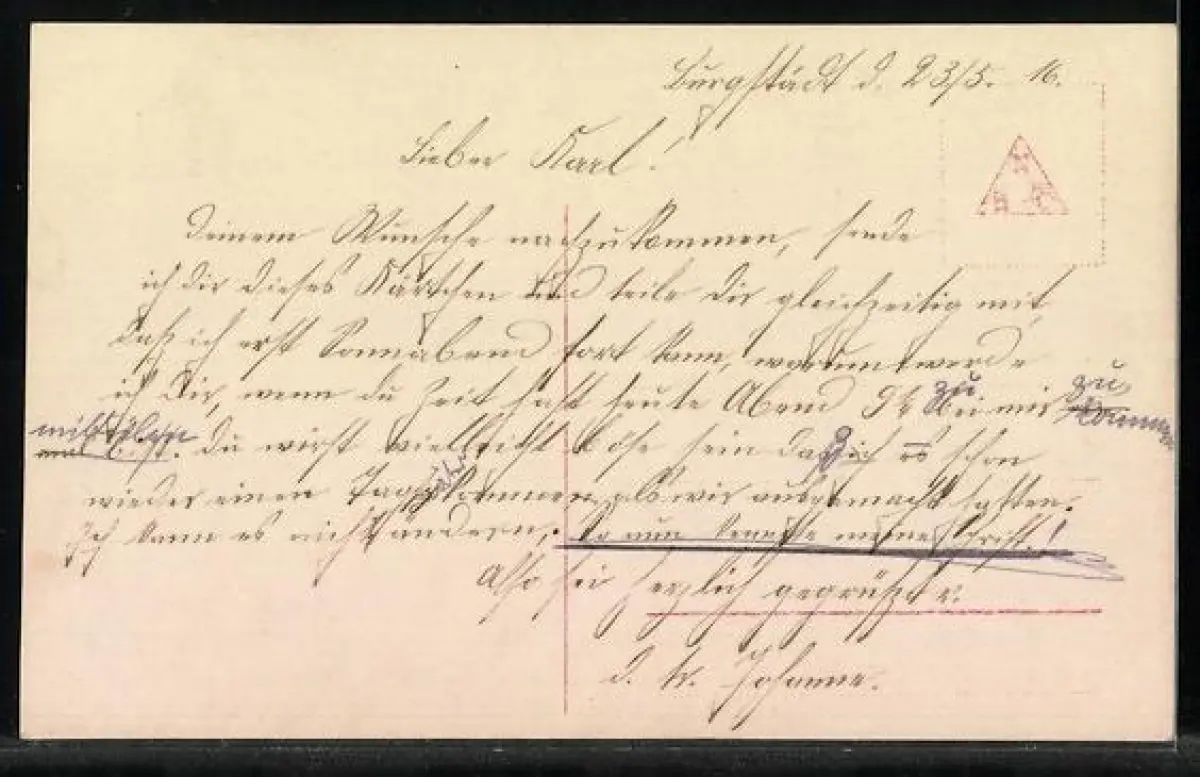 Burgstädt d. 23/5. 16.
Lieber Karl!
Deinem Wunsche nachzukommen, sende
ich dir dieses Kärtchen und teile dir gleichzeitig mit,
daß ich erst Sonnabend fort kann, warum werde
ich Dir, wenn du Zeit hast heute Abend zu mir zu
kommen
du wirst vielleicht böse sein daß ich es schon
wieder einen Tag kommen, als wir ausgemacht hatten.
Ich kann es nicht ändern. So nun kennste meine Schrift!
Also sei herzlich gegrüßt v.
d. tr. Johanne.